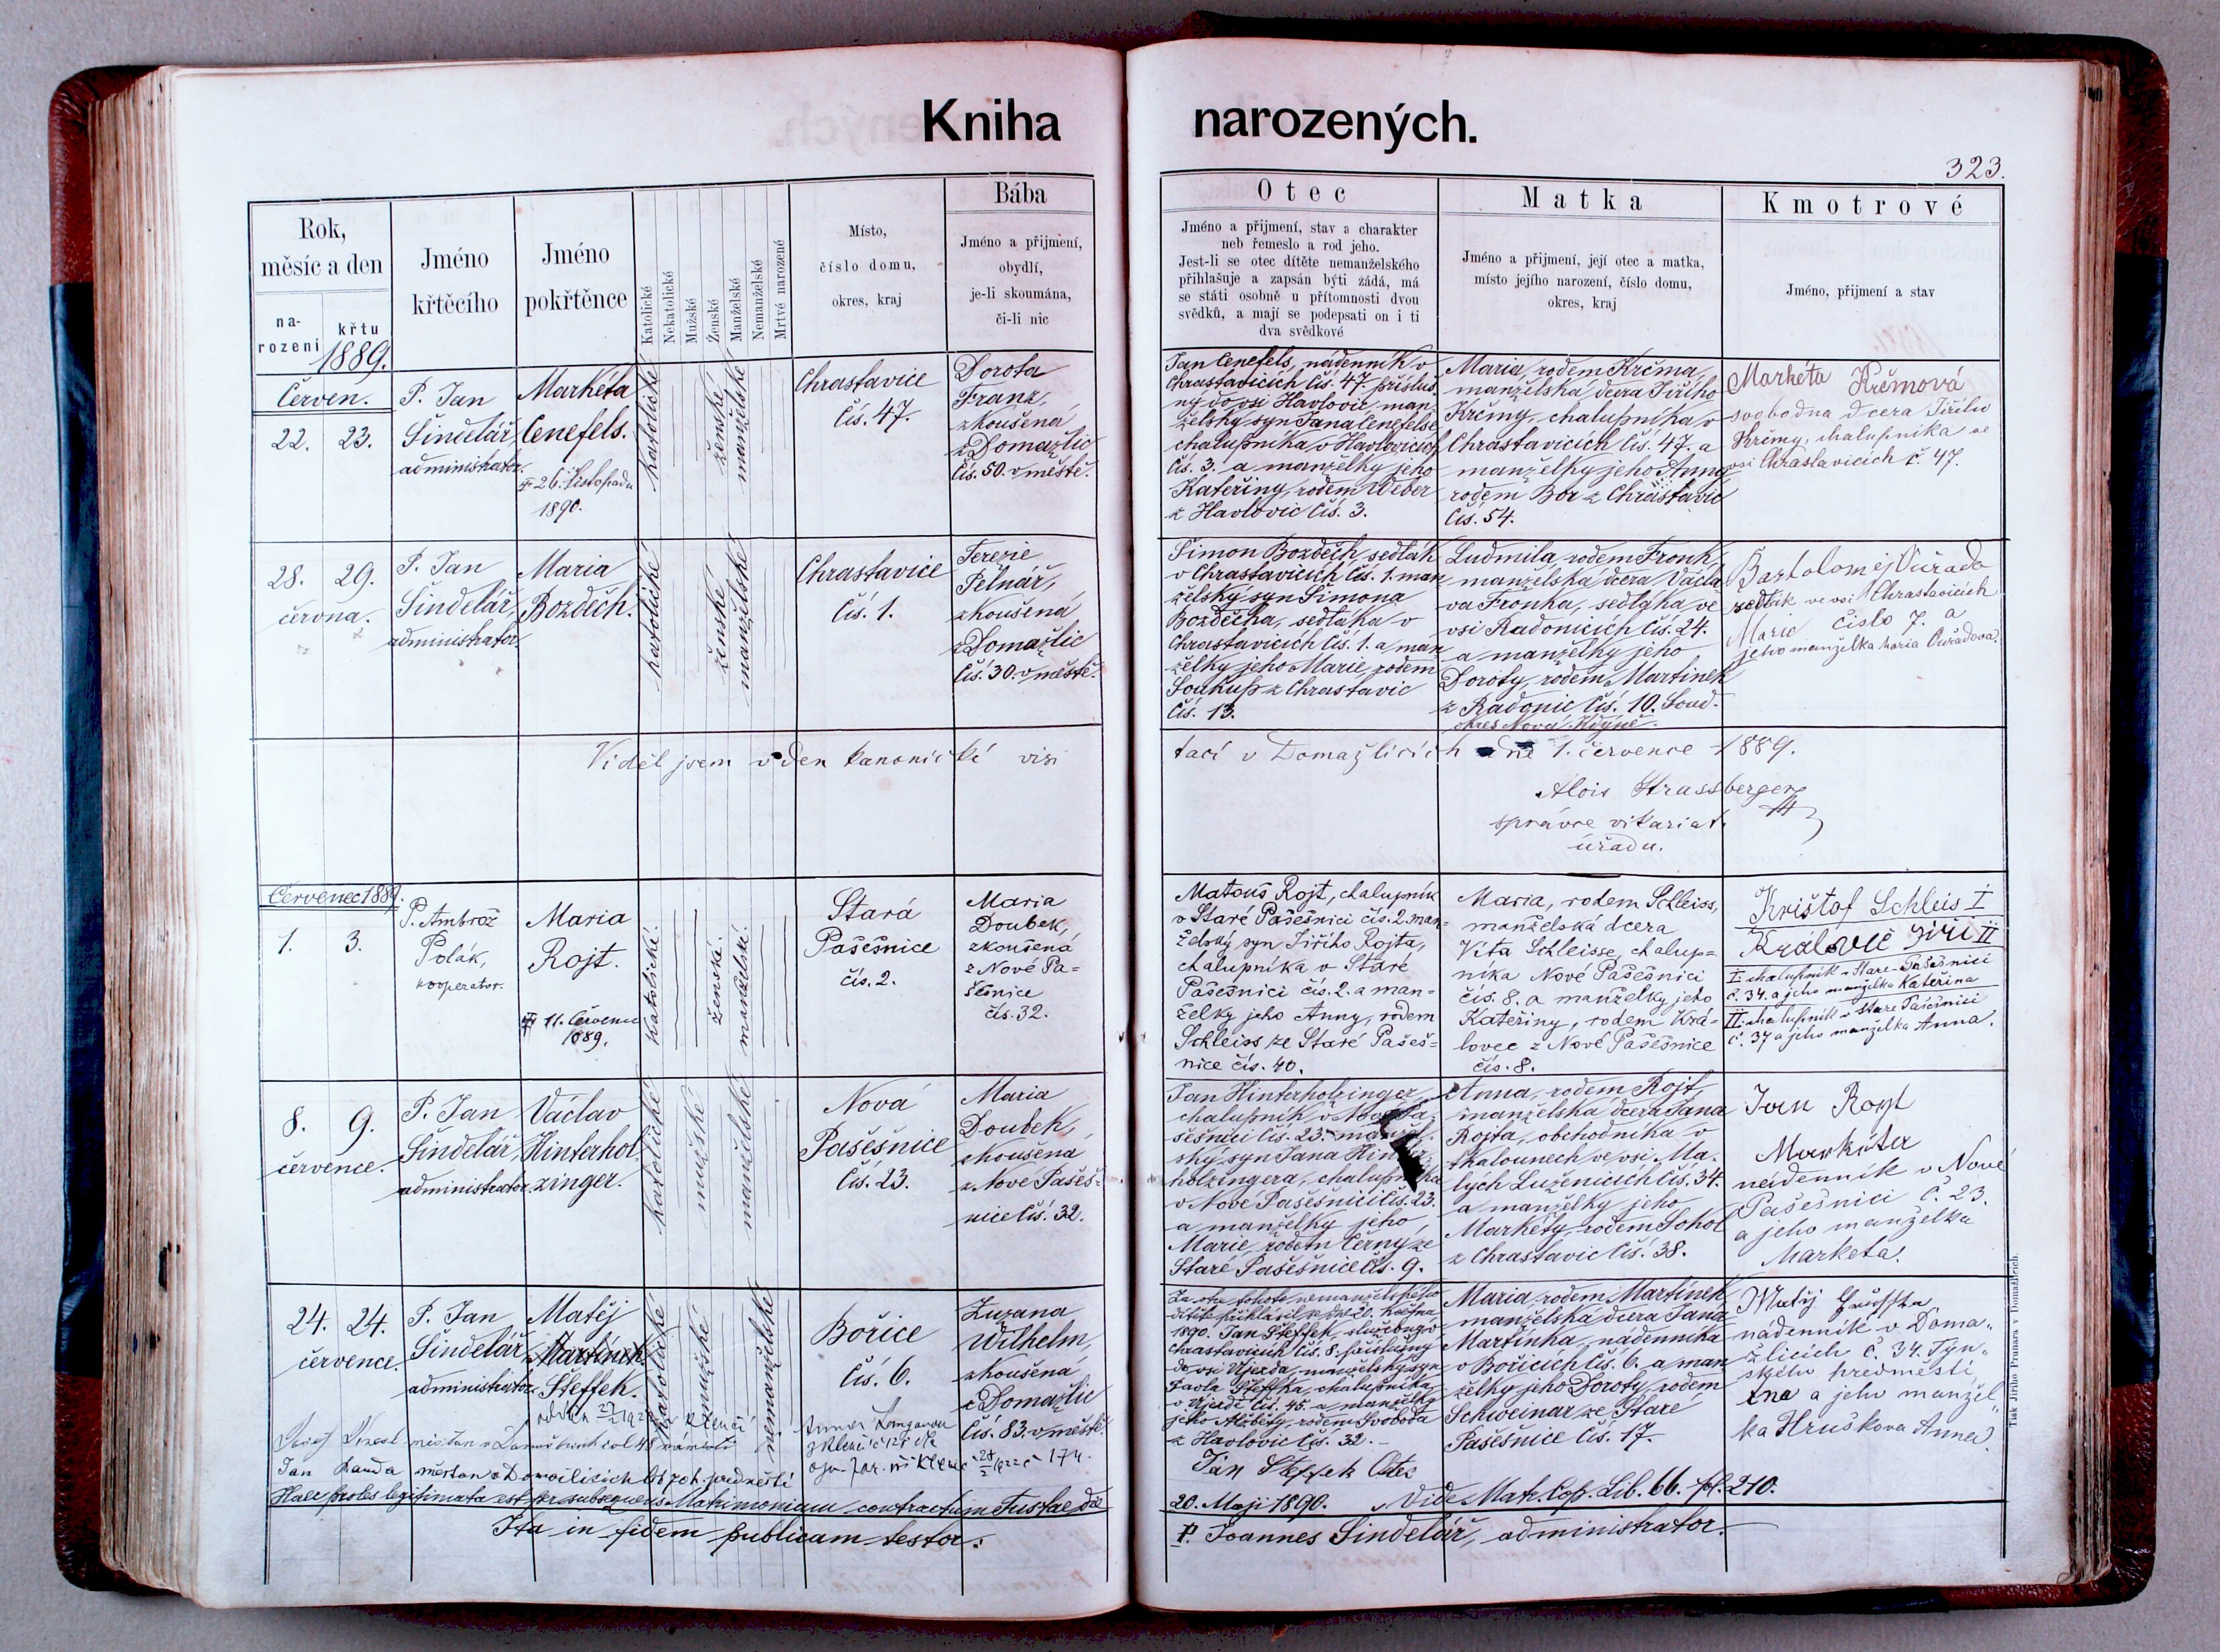 Kniha narozených.
323.
Rok,
měsíc a den
na-
rození
křtu
1889.
Jméno
křtěcího
Jméno
pokřtěnce
Katolické
Nekatolické
Mužské
Ženské
Manželské
Nemanželské
Mrtvě narozené
Místo,
číslo domu,
okres, kraj
Bába
Jméno a přijmení,
obydlí,
je-li skoumána,
či-li nic
Otec
Jméno a přijmení, stav a charakter
neb řemeslo a rod jeho.
Jest-li se otec dítěte nemanželského
přihlašuje a zapsán býti žádá, má
se státi osobně u přítomnosti dvou
svědků, a mají se podepsati on i ti
dva svědkové
Matka
Jméno a přijmení, její otec a matka,
místo jejího narození, číslo domu,
okres, kraj
Kmotrové
Jméno, přijmení a stav
Červen.
22. 23.
P. Jan
Šindelář,
administrator.
Markéta
Cenefels.
26. listopadu
1890.
katolické
ženské
manželské
Chrastavice
čís. 47.
Dorota
Franz,
zkoušená
z Domažlic
čís. 50. v městě.
Jan Cenefels, nádenník v
Chrastavicích čís. 47. přísluš-
ný do vsi Havlovic, man-
želský syn Jana Cenefelse
chalupníka v Havlovicích
čís. 3. a manželky jeho
Kateřiny, rodem Weber
z Havlovic čís. 3.
Maria, rodem Krčma,
manželská dcera Jiřího
Krčmy, chalupníka v
Chrastavicích čís. 47. a
manželky jeho Anny
rodem Bor z Chrastavic
čís. 54.
Markéta Krčmová
svobodna dcera Jiřího
Krčmy, chalupníka ve
vsi Chrastavicích č. 47.
28. 29.
června.
P. Jan
Šindelář,
administrator.
Maria
Bozděch.
katolické
ženské
manželské
Chrastavice
čís. 1.
Terezie
Felnář,
zkoušená
z Domažlic
čís. 30. v městě.
Šimon Bozděch, sedlák
v Chrastavicích čís. 1. man-
želský syn Šimona
Bozděcha, sedláka v
Chrastavicích čís. 1. a man-
želky jeho Marie, rodem
Soukup z Chrastavic
čís. 13.
Ludmila, rodem Fronk,
manželská dcera Václa-
va Fronka, sedláka ve
vsi Radonicích čís. 24.
a manželky jeho
Doroty, rodem Martinek
z Radonic čís. 10. Soud.
okres Nová Kdýně.
Bartoloměj
sedlák ve vsi Chrastavicích
číslo 7. a
Marie
jeho manželka Maria
Viděl jsem v den kanonické visi
tací v Domažlicích dne 1. července 1889.
Alois Strassberger
správce vikariat.
úřadu.
Červenec 1889.
1. 3.
P. Ambrož
Polák,
kooperator.
Maria
Rojt.
11. Července
1889.
katolické.
ženské.
manželské.
Stará
Pašešnice
čís. 2.
Maria
Doubek,
zkoušená
z Nové Pa=
šešnice
čís. 32.
Matouš Rojt, chalupník
v Staré Pašešnici čís. 2. man=
želský syn Jiřího Rojta,
chalupníka v Staré
Pašešnici čís. 2. a man=
želky jeho Anny, rodem
Schleiss ze Staré Pašeš=
nice čís. 40.
Maria, rodem Schleiss,
manželská dcera
Víta Schleisse, chalup=
níka Nové Pašešnici
čís. 8. a manželky jeho
Kateřiny, rodem Krá=
lovec z Nové Pašešnice
čís. 8.
Krištof Schleis I
Královec Jiří II
I. chalupník v Staré-Pašešnici
č. 34. a jeho manželka Kateřina
II. chalupník v Staré Pašešnici
č. 37 a jeho manželka Anna.
8. 9.
července.
P. Jan
Šindelář,
administrator.
Václav
Hinterhol-
zinger.
katolické
mužské
manželské
Nová
Pašešnice
čís. 23.
Maria
Doubek,
zkoušená
z Nové Pašeš-
nice čís. 32.
Jan Hinterholzinger,
chalupník v Nové Pa-
šešnici čís. 23. manžel-
ský syn Jana Hinter-
holzingera, chalupníka
v Nové Pašešnici čís. 23.
a manželky jeho
Marie, rodem Černy, ze
Staré Pašešnice čís. 9.
Anna, rodem Rojt,
manželská dcera Jana
Rojta, obchodníka v
tkalounech ve vsi Ma-
lých Luženicích čís. 34.
a manželky jeho
Markéty, rodem Sokol
z Chrastavic čís. 38.
Jan
nádenník v Nové
Pašešnici č. 23.
a jeho manželka
Marketa.
24. 24.
července.
P. Jan
Šindelář,
administrator.
Matěj
Martínek
Steffek.
katolické
mužské
nemanželské
Bořice
čís. 6.
Zuzana
Wilhelm,
zkoušená
z Domažlic
čís. 83. v městě.
Za otce tohoto nemanželského
dítěte přihlásil se dne 20. května
1890. Jan Steffek, sloužebný v
Chrastavicích čís. 8. příslušný
do vsi Újezda, manželský syn
Pavla Steffka, chalupníka
v Újezdě čís. 45. a manželky
jeho Alžběty, rodem Svoboda
z Havlovic čís. 32.
Ján Steffek Otec
Maria, rodem Martínek
manželská dcera Jana
Martínka, nádenníka
v Bořicích čís. 6. a man-
želky jeho Doroty, rodem
Schweinar ze Staré
Pašešnice čís. 17.
Matěj
nádenník v Doma„
žlicích č. 34. Týn„
ského předměstí,
a jeho manžel„
ka Hruškova Anna.
Jan Randa měšťan v Domažlicích
Haec proles legitimata est per subsequens Matrimonium contractum Tustae die
20. Maji 1890. Vide Matr. Cop. Lib. 66. fol. 210.
Ita in fidem publicam testor:
P. Joannes Šindelář, administrator.
Tisk Jiřího Prunara v Domažlicích.